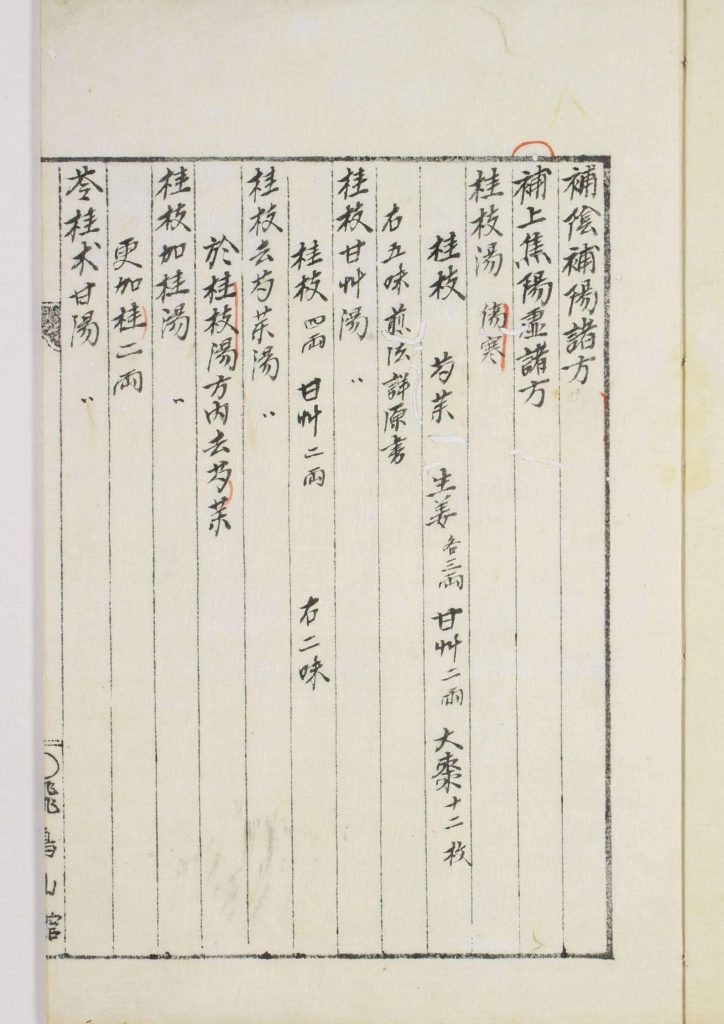 補陰補陽諸方
補上焦陽虛諸方
桂枝湯 傷寒
桂枝 芍藥 生姜各三兩 甘艸二兩 大棗十二枚
右五味煎法詳原書
桂枝甘艸湯 〃
桂枝四兩 甘艸二兩 右二味
桂枝去芍茱湯 〃
於桂枝湯方内去芍茱
桂枝加桂湯 〃
更加桂二兩
苓桂术甘湯 〃